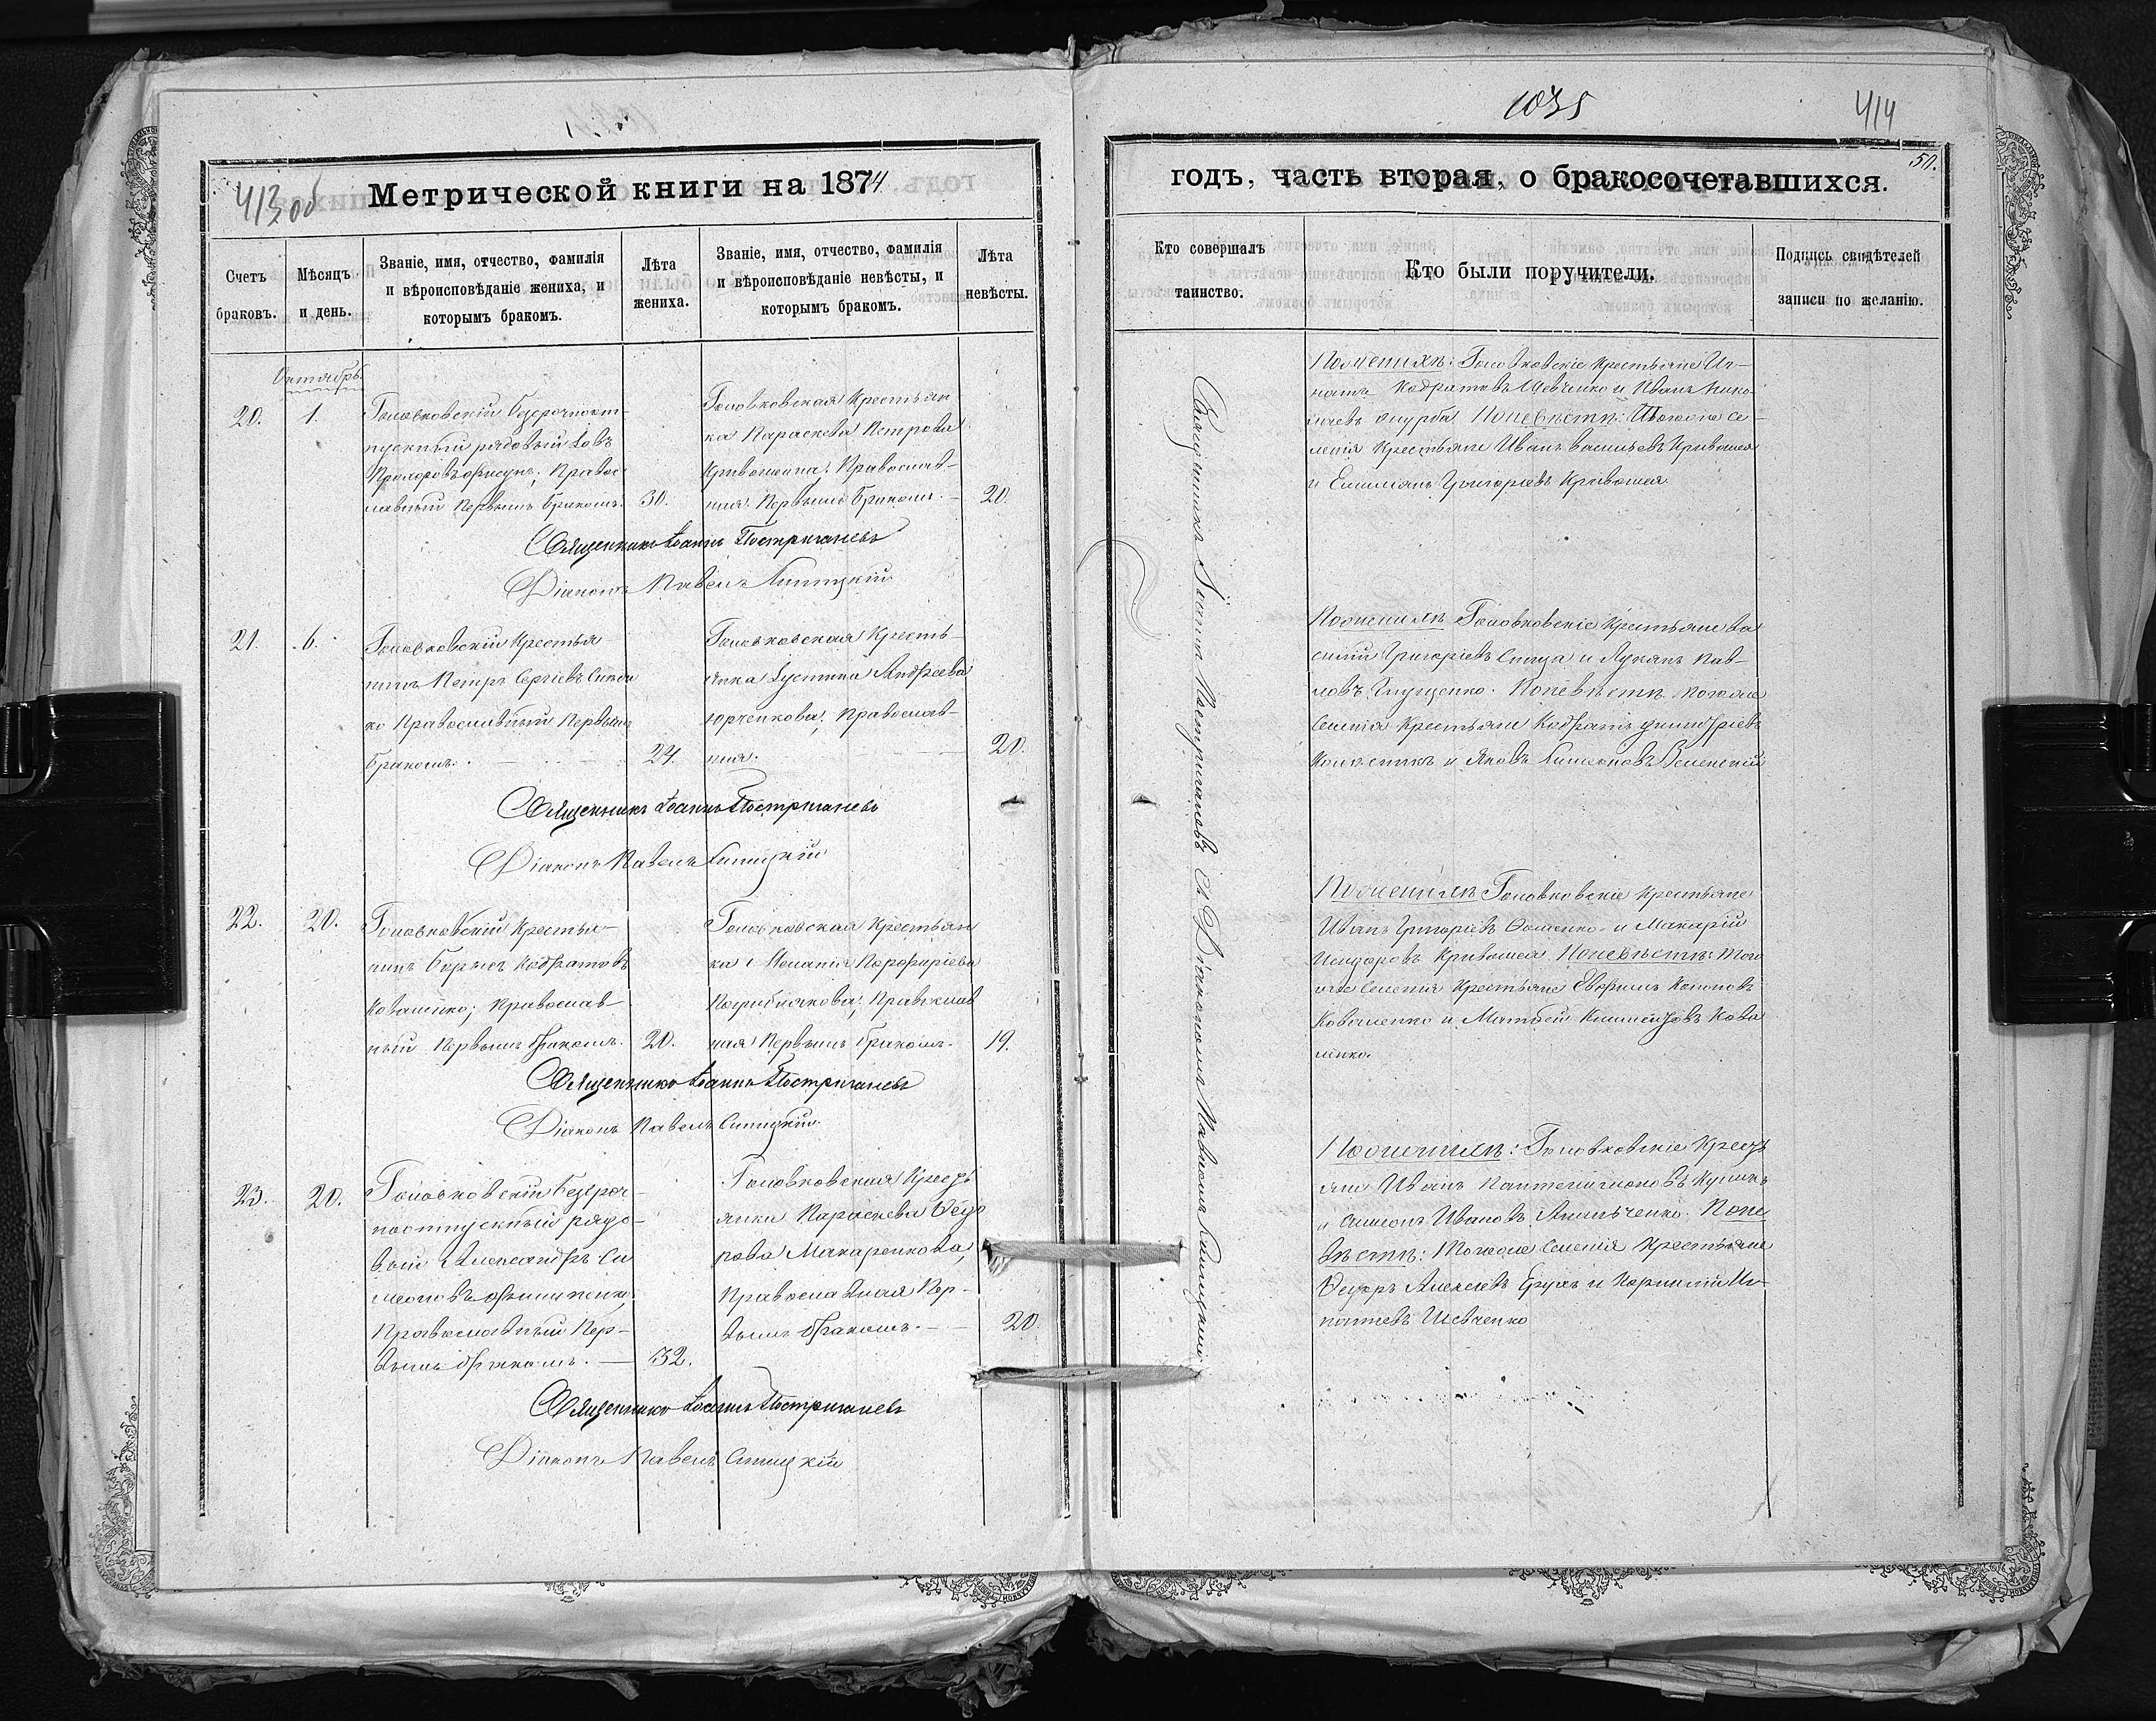 413 об
Метрической книги на 1874
Счетъ
браковъ.
Мѣсяцъ
и день.
Званіе, имя, отчество, фамилія
и вѣроисповѣданіе жениха, и
которымъ бракомъ.
Лѣта
жениха.
Званіе, имя, отчество, фамилія
и вѣроисповѣданіе невѣсты, и
которымъ бракомъ.
Лѣта
невѣсты.
Октябрь.
20.
1.
Головковскій безсрочноот-
пускный рядовый
Православный Первымъ бракомъ.
30.
Головковская Крестьян
ка Параскева Петрова
Кривошеина, Православ-
ная. Первымъ бракомъ.
20.
Священникъ Іоаннъ Постригачевъ
Діаконъ Павелъ Липицкій
21.
6.
Головковскій Крестья
нинъ Петръ Сергіевъ
ко Православный Первымъ
бракомъ.
24.
Головковская Кресть-
янка Іустина Андреева
Юрченкова, Православ-
ная.
20.
Священникъ Іоаннъ Постригачевъ
Діаконъ Павелъ Липицкій
22.
20.
Головковскій Крестья-
нинъ Борисъ Кодратовъ
Коваленко; Православ-
ный Первымъ бракомъ.
20.
Головковская Крестьян
ка Меланія Порфиріева
Православ
ная Первымъ бракомъ.
19.
Священникъ Іоаннъ Постригачевъ
Діаконъ Павелъ Липицкій
23.
20.
Головковскій безсроч-
ноотпускный рядо-
вый Александръ Си
меоновъ
Православный Пер-
вымъ бракомъ.
32.
Головковская Крест
янка Параскева Ѳедо
рова Макаренкова,
Православная Пер-
вымъ бракомъ.
20
Священникъ Іоаннъ Постригачевъ
Діаконъ Павелъ Липицкій
1035
414
50.
годъ, часть вторая, о бракосочетавшихся.
Кто совершалъ
таинство.
Кто были поручители.
Подпись свидѣтелей
записи по желанію.
Священникъ Іоаннъ Постригачевъ съ Діакономъ Павломъ Липицкимъ
По женихѣ: Головковскіе крестьяне Иг-
натъ Кодратовъ Шевченко и Иванъ Нико-
лаевъ По невѣстѣ: Тогоже се-
ленія Крестьяне Иванъ Васильевъ Кривошея
и Емиліанъ Григоріевъ Кривошея
По женихѣ Головковскіе Крестьяне Ва
силій Григоріевъ и Лукянъ Пав-
ловъ Глущенко. По невѣстѣ тогоже
Селенія Крестьяне Кодратъ Димитріевъ
и Яковъ Зеленскій
По женихѣ Головковскіе Крестьяне
Иванъ Григоріевъ и Макарій
Исидоровъ Кривошея По невѣстѣ: того
же Селенія Крестьяне Евфимъ Кононовъ
Коваленко и Матѳей Кова
ленко.
По женихѣ: Головковскіе Крест
яне Иванъ Пантелиимоновъ
и Симеонъ Ивановъ По не
вѣстѣ: Тогоже Селенія Крестьяне
Ѳедоръ Алексѣевъ и Корнилій Иг-
натіевъ Шевченко